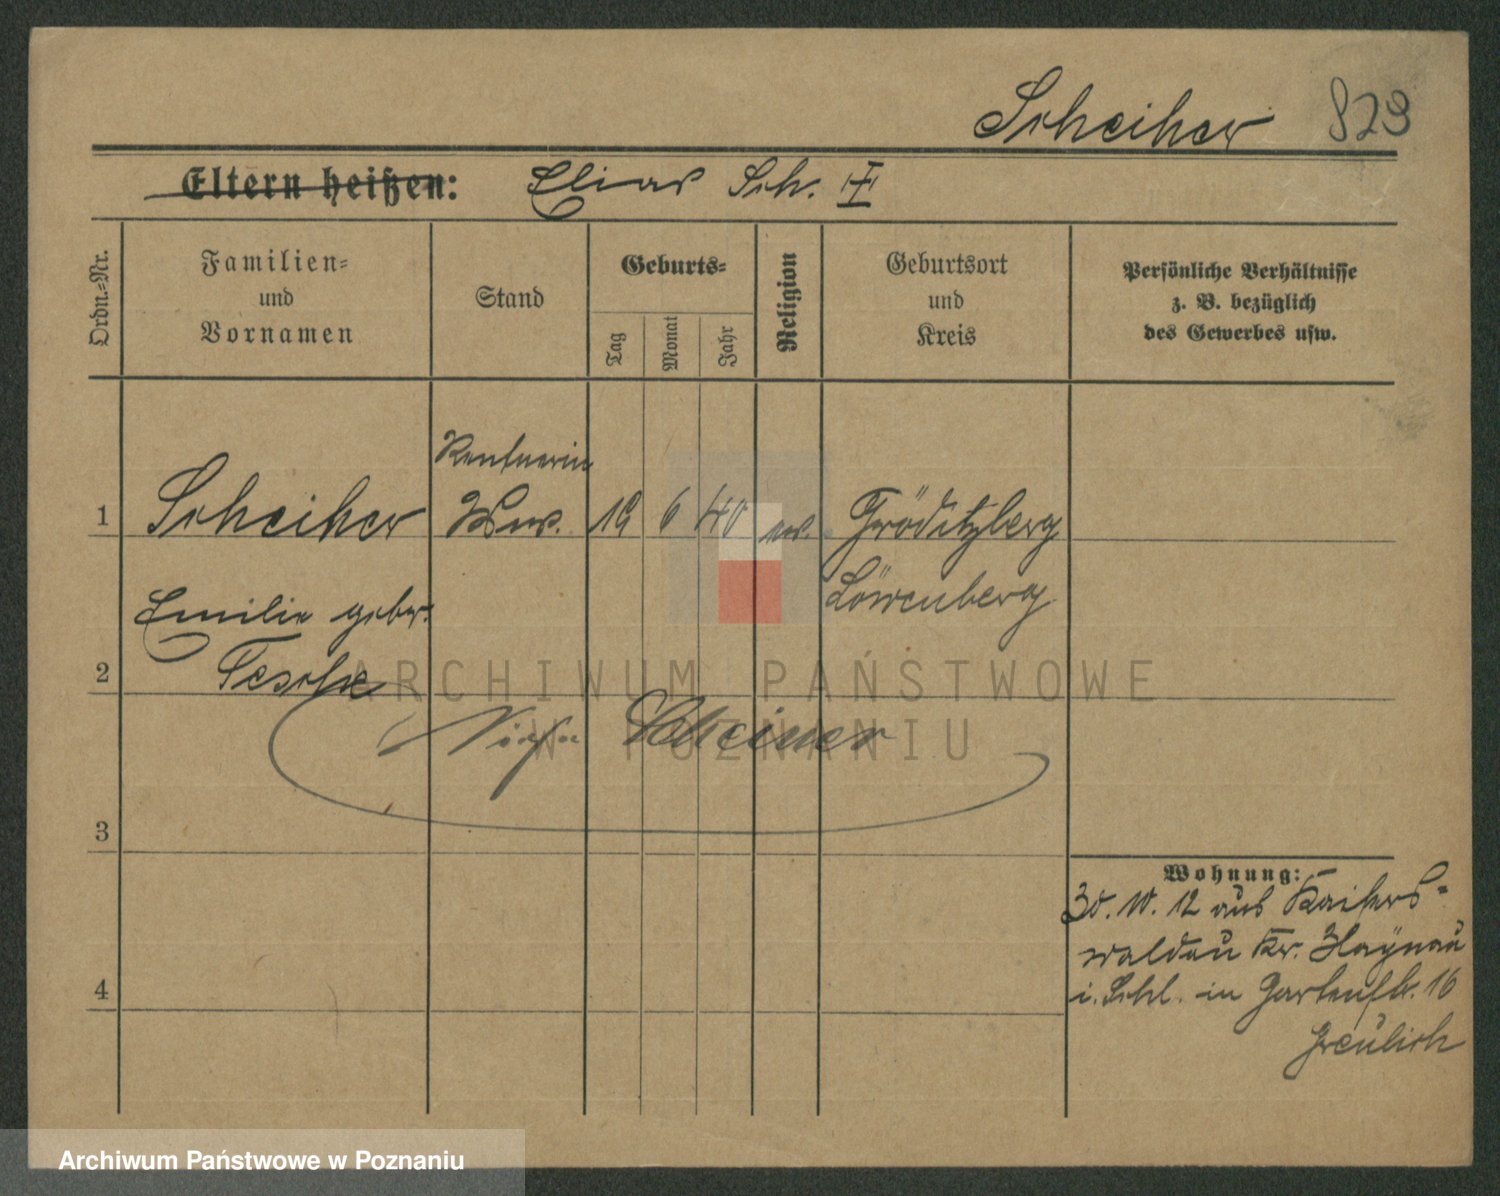 Scheiher 823
Eltern heißen: Elias Sch. I
Ordn.=Nr.
Familien=
und
Vornamen
Stand
Geburts=
Tag
Monat
Jahr
Religion
Geburtsort
und
Kreis
Persönliche Verhältnisse
z. B. bezüglich
des Gewerbes usw.
Rentnerin
1 Scheiher Ww. 19 6 40 ev. Gröditzberg
Emilie gebor. Löwenberg
2 Tesche
Scheiner
3
4
Wohnung:
30. 10. 12 aus Kaisers=
waldau Kr. Haynau
i. Schl. in Gartenstr. 16
Greulich
ARCHIWUM PAŃSTWOWE
W POZNANIU
Archiwum Państwowe w Poznaniu